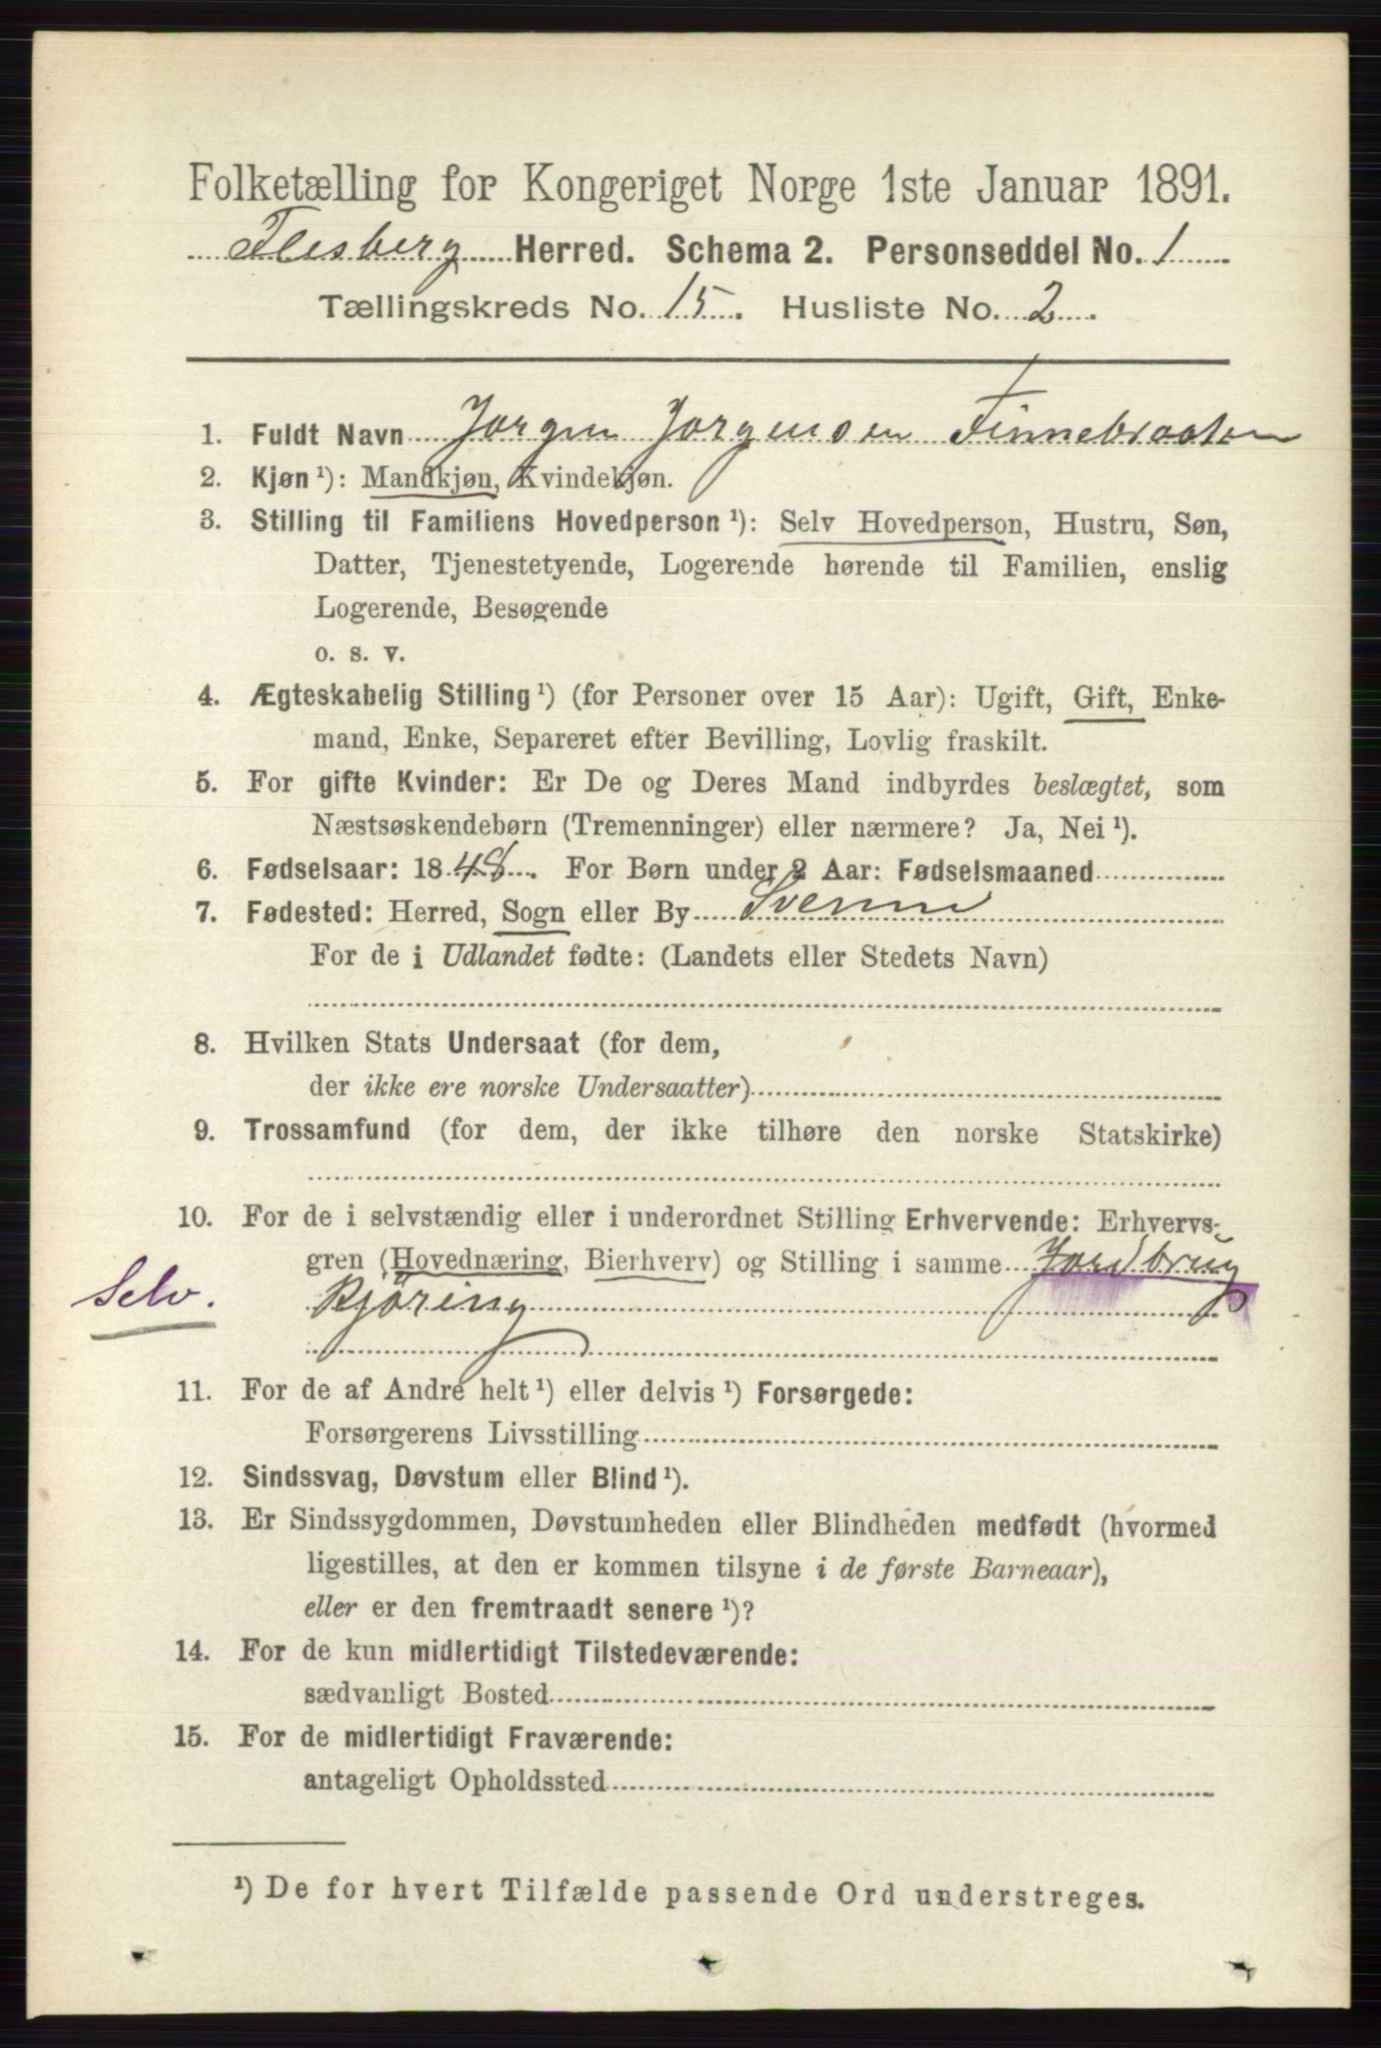 Folketælling for Kongeriget Norge 1ste Januar 1891.
Flesberg Herred. Schema 2. Personseddel No. 1
Tællingskreds No. 15. Husliste No. 2.
1. Fuldt Navn Jørgen Jørgensen Finnebraaten
2. Kjøn ¹): Mandkjøn, Kvindekjøn.
3. Stilling til Familiens Hovedperson ¹): Selv Hovedperson, Hustru, Søn,
Datter, Tjenestetyende, Logerende hørende til Familien, enslig
Logerende, Besøgende
o. s. v.
4. Ægteskabelig Stilling ¹) (for Personer over 15 Aar): Ugift, Gift, Enke-
mand, Enke, Separeret efter Bevilling, Lovlig fraskilt.
5. For gifte Kvinder: Er De og Deres Mand indbyrdes beslægtet, som
Næstsøskendebørn (Tremenninger) eller nærmere? Ja, Nei ¹).
6. Fødselsaar: 1848. For Børn under 2 Aar: Fødselsmaaned
7. Fødested: Herred, Sogn eller By Svenne
For de i Udlandet fødte: (Landets eller Stedets Navn)
8. Hvilken Stats Undersaat (for dem,
der ikke ere norske Undersaatter)
9. Trossamfund (for dem, der ikke tilhøre den norske Statskirke)
10. For de i selvstændig eller i underordnet Stilling Erhvervende: Erhvervs-
gren (Hovednæring, Bierhverv) og Stilling i samme Jordbrug
Selv. Kjøring
11. For de af Andre helt ¹) eller delvis ¹) Forsørgede:
Forsørgerens Livsstilling
12. Sindssvag, Døvstum eller Blind ¹).
13. Er Sindssygdommen, Døvstumheden eller Blindheden medfødt (hvormed
ligestilles, at den er kommen tilsyne i de første Barneaar),
eller er den fremtraadt senere ¹)?
14. For de kun midlertidigt Tilstedeværende:
sædvanligt Bosted
15. For de midlertidigt Fraværende:
antageligt Opholdssted
¹) De for hvert Tilfælde passende Ord understreges.